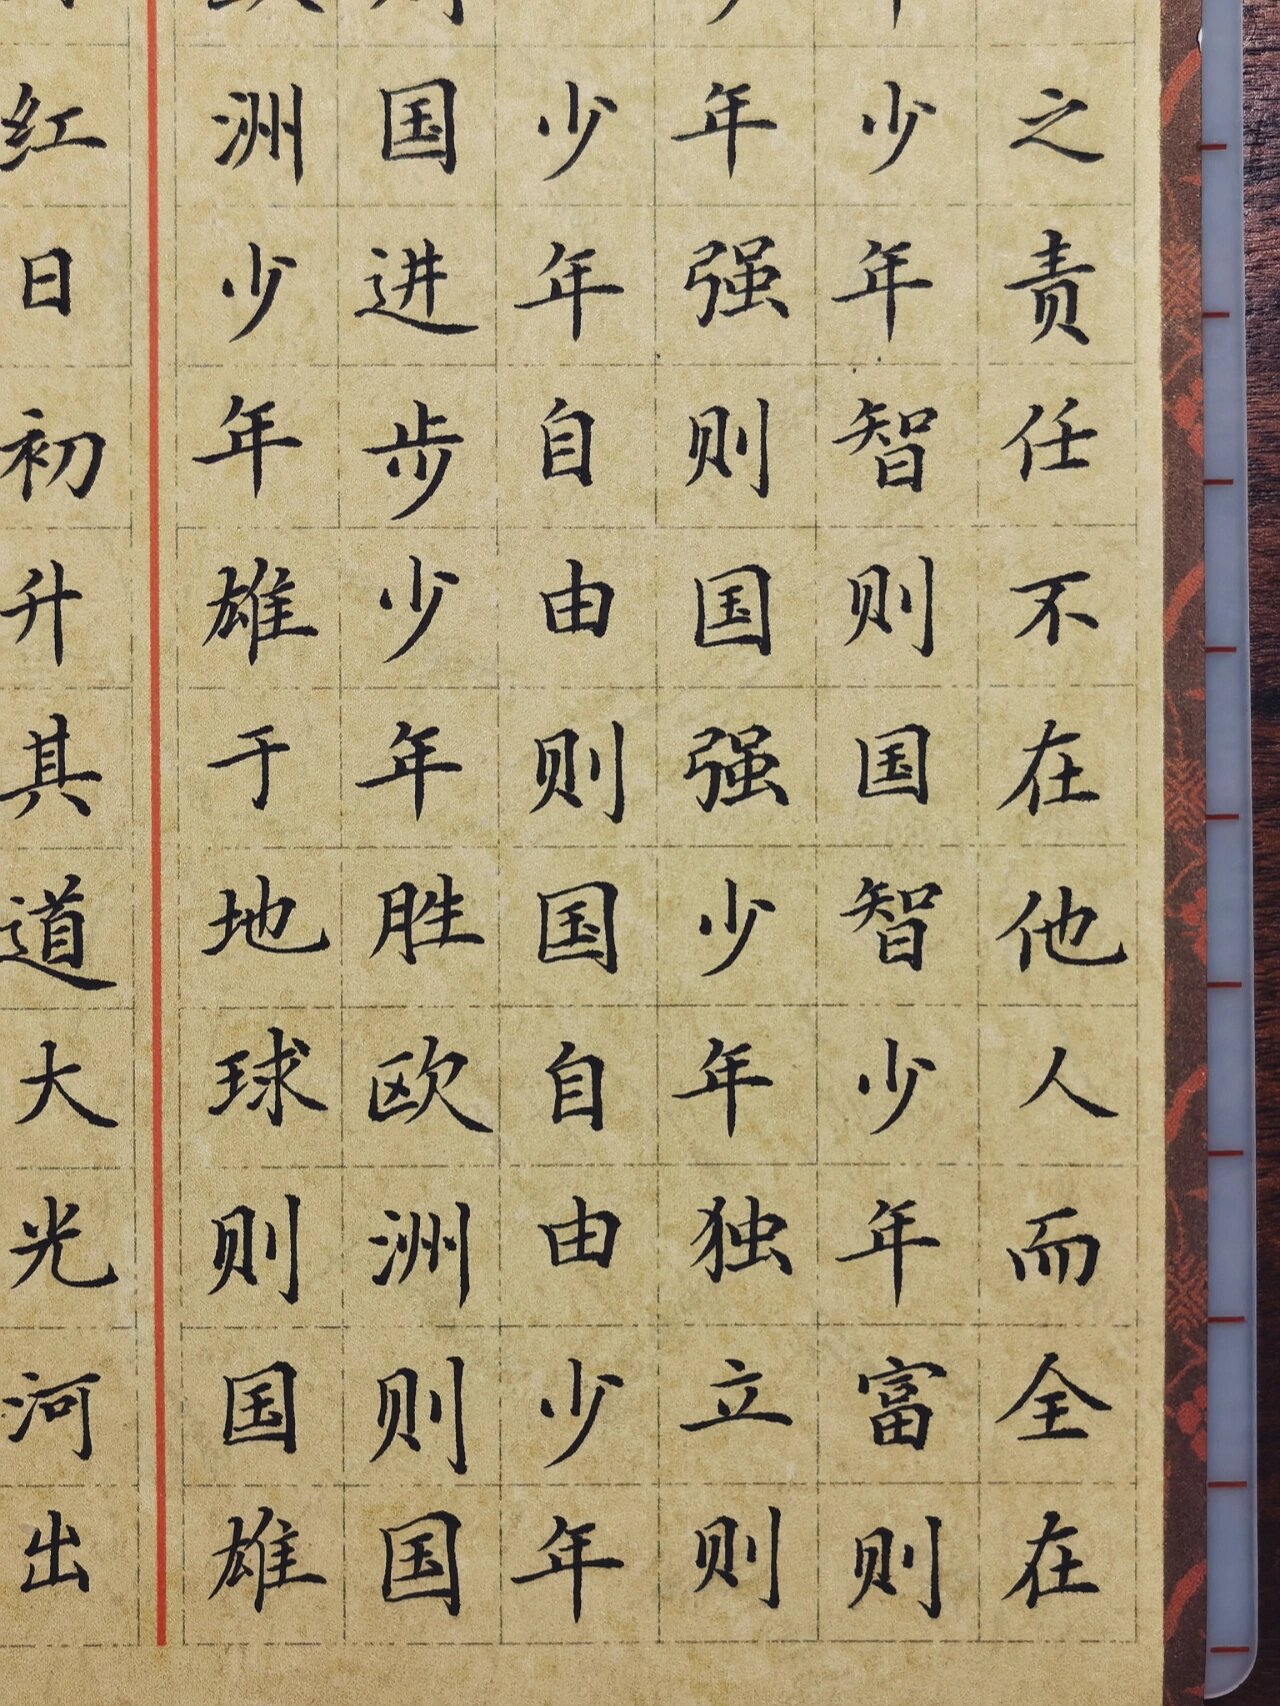 之责任不在他人而全在
少年智则国智少年富则
年强则国强少年独立则
少年自由则国自由少年
国进步少年胜欧洲则国
洲少年雄于地球则国雄
红日初升其道大光河出